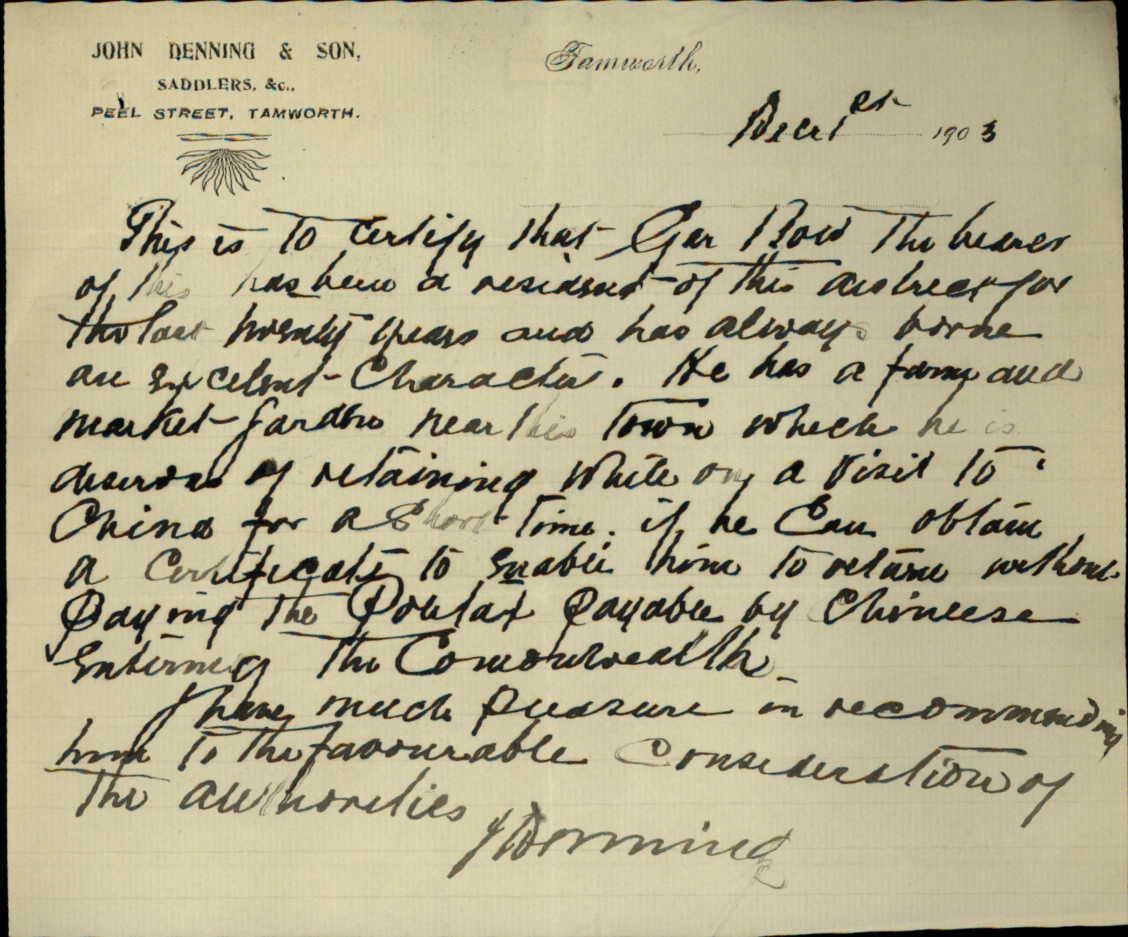 JOHN DENNING & SON,
SADDLERS, &c.,
PEEL STREET, TAMWORTH.
Tamworth,
Decr 1st 1903
This is to certify that Gar Bow the bearer
of this has been a resident of this district for
the last twenty years and has always borne
an excelent Character. He has a farm and
market garden near this Town which he is
desirous of retaining while on a visit to
China for a Short Time. if he Can obtain
a Certificate to enable him to return without
Paying The Poletax Payable by Chineese
Entering The Comonwealth.
I have much pleasure in recommending
him to The favourable Consideration of
The authorities
J Denning